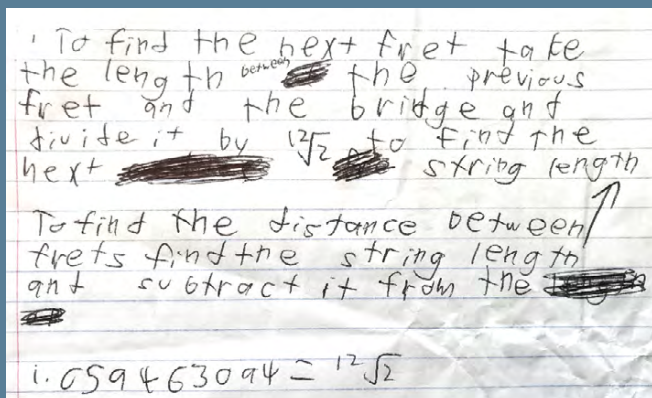 To find the next fret take
the length between the previous
fret and the bridge and
divide it by ¹²√2 to find the
next string length
To find the distance between
frets find the string length
and subtract it from the
1.059463094 = ¹²√2